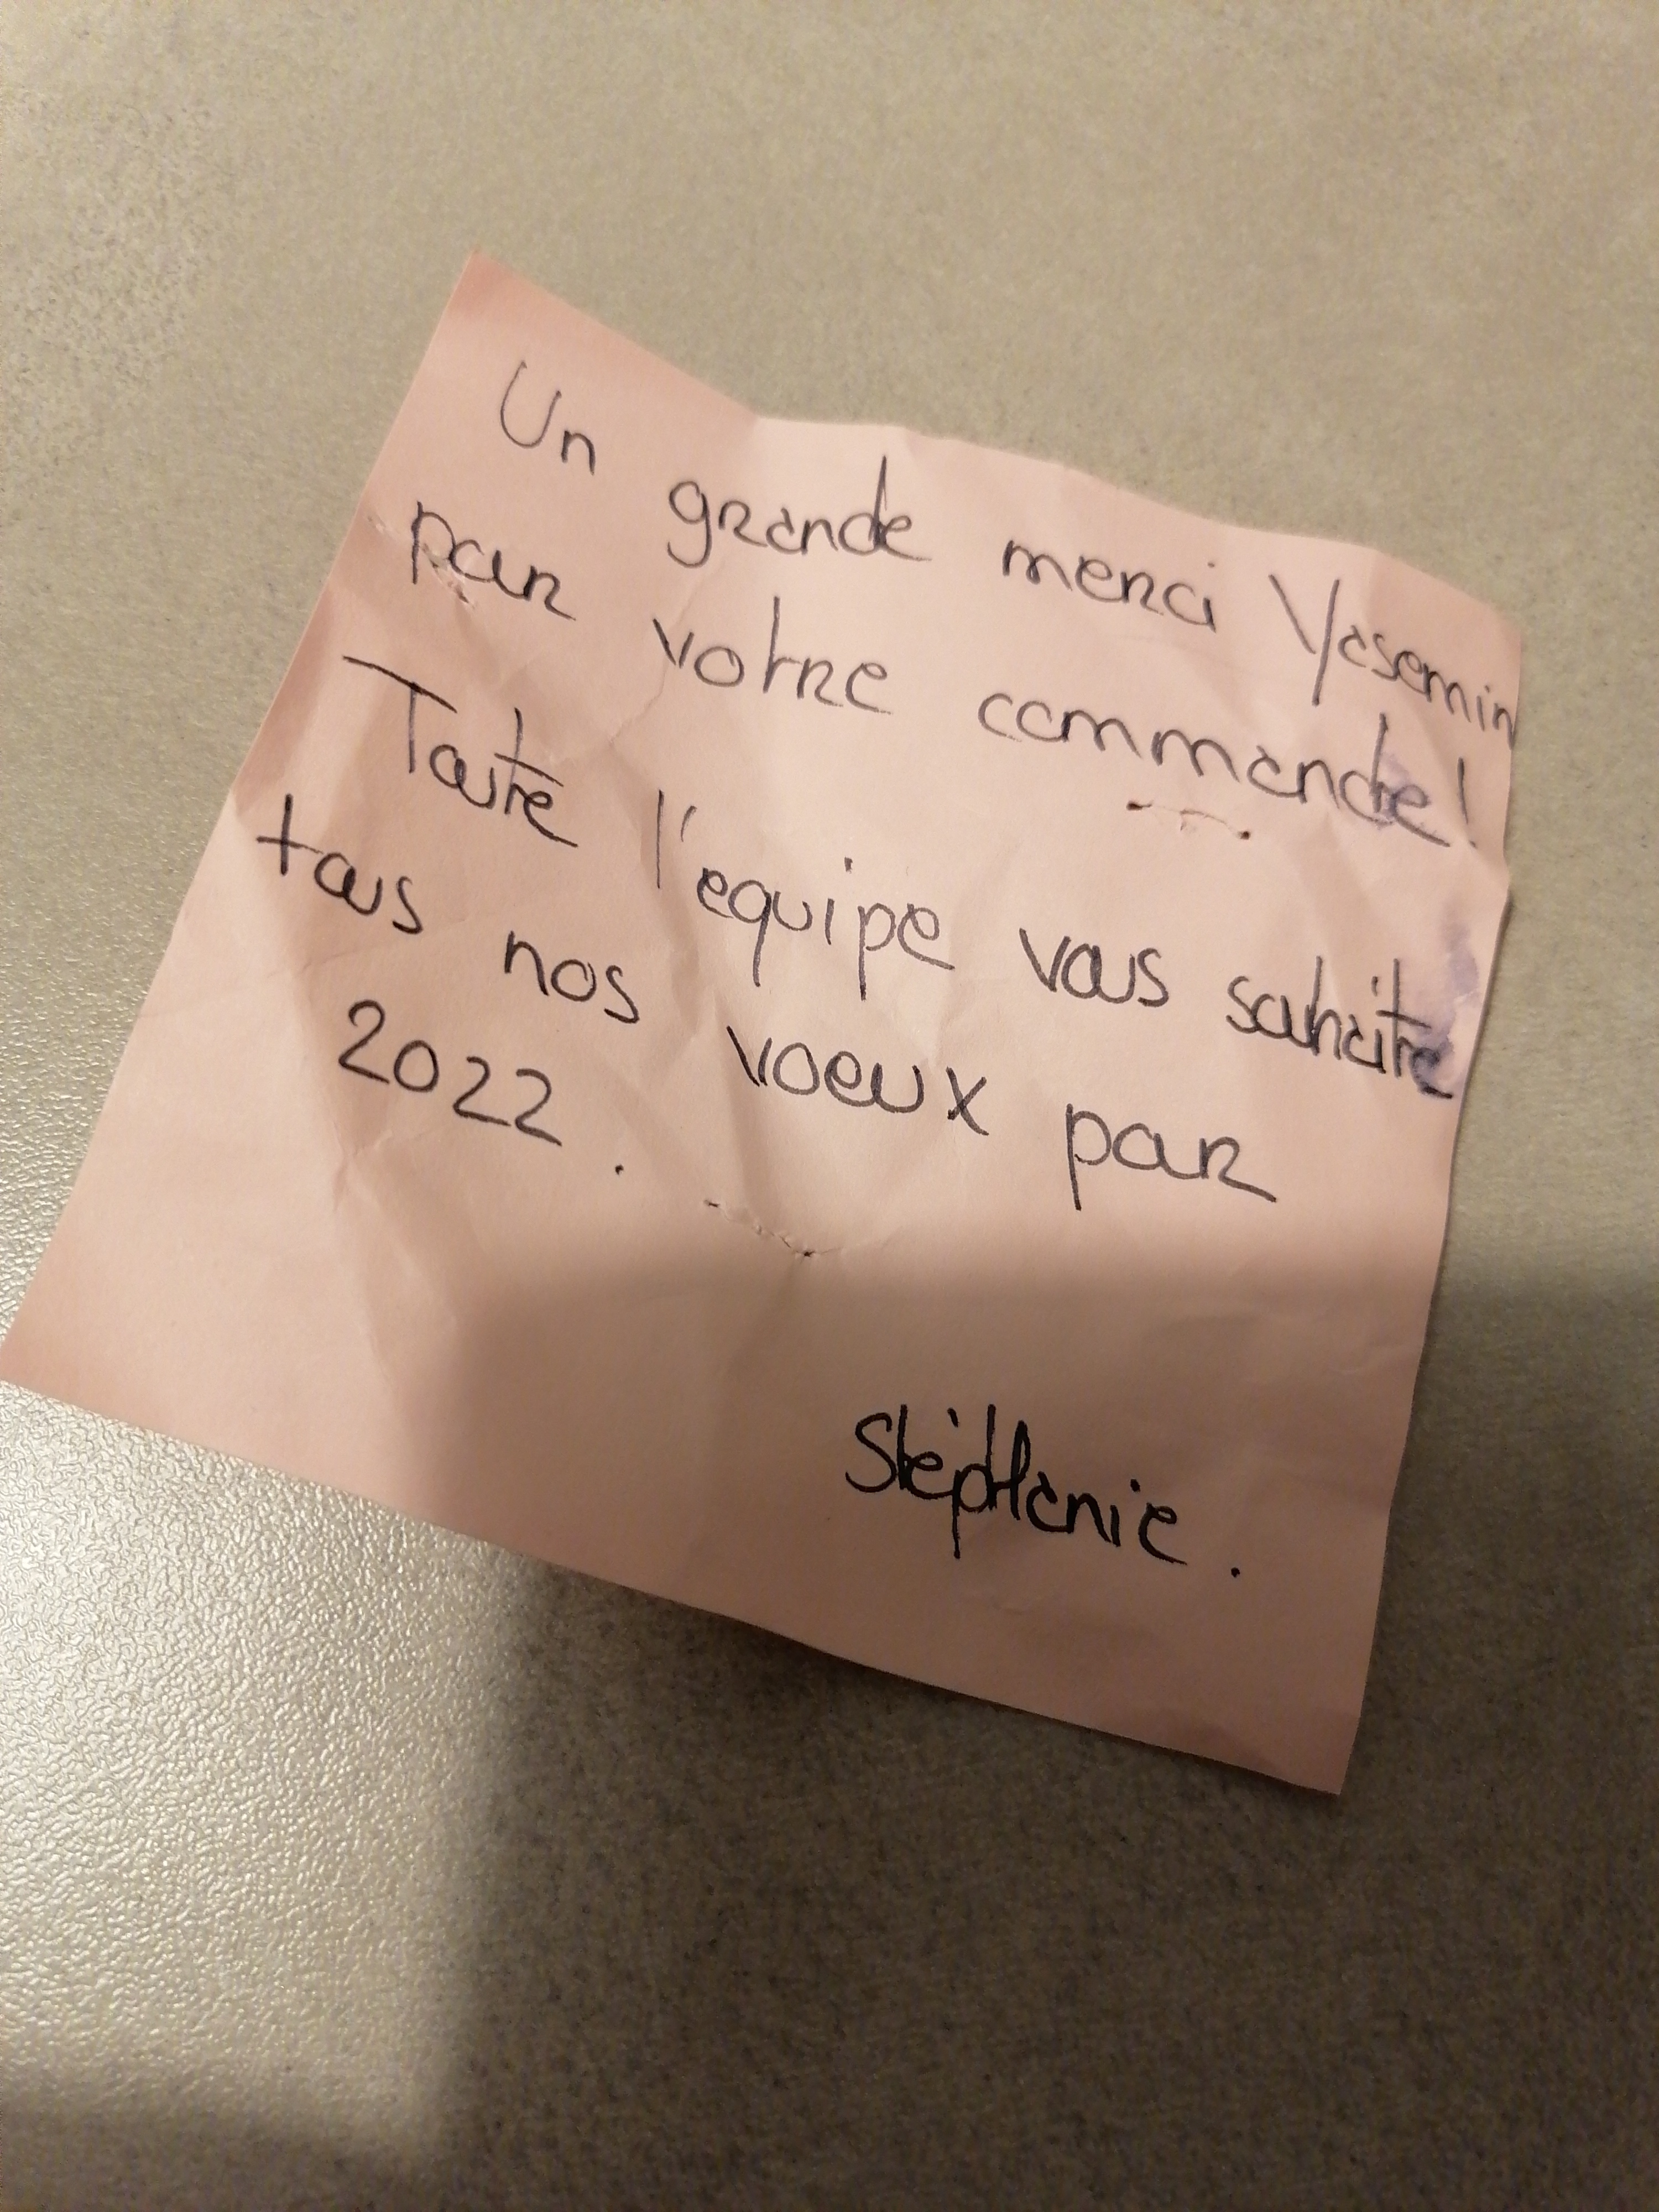 Un grande merci Yasemin
pour votre commande!
Toute l'equipe vous souhaite
tous nos voeux pour
2022.
Stéphanie.